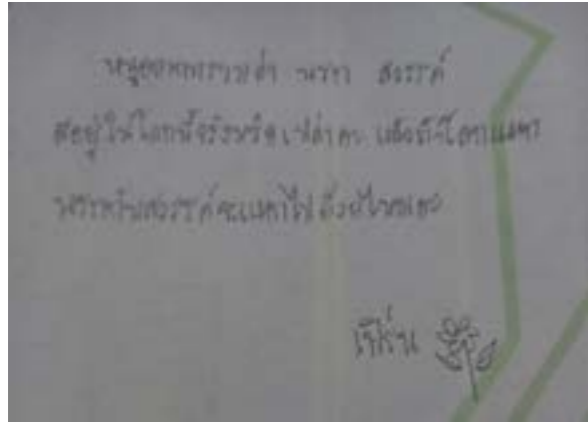 หนูอยากทราบว่า นรก สวรรค์
มีอยู่ในโลกนี้จริงหรือเปล่าคะ แล้วถ้าโลกแตก
นรกกับสวรรค์จะแตกไปด้วยไหมคะ